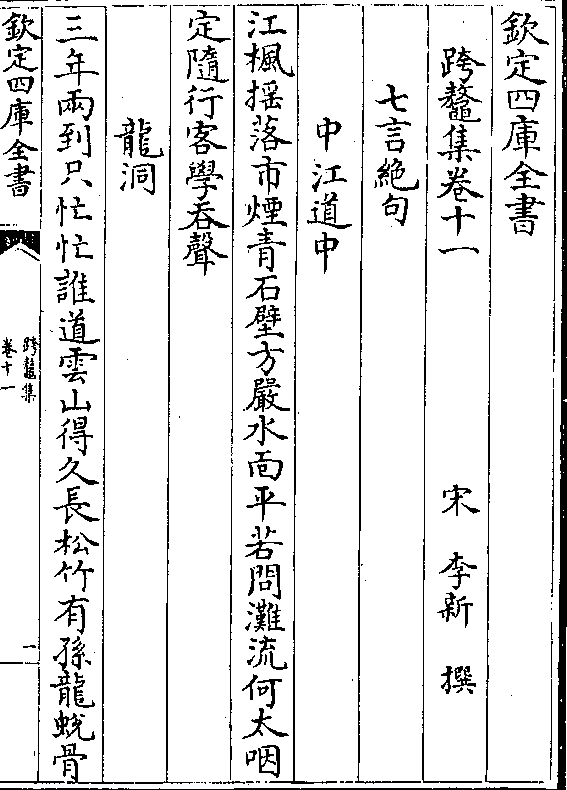 欽定四庫全書
跨鼇集卷十一
宋 李新 撰
七言絶句
中江道中
江楓揺落市煙青石壁方嚴水面平若問灘流何太咽
定隨行客學吞聲
龍洞
三年兩到只忙忙誰道雲山得久長松竹有孫龍蛻骨
欽定四庫全書
跨鼇集
卷十一
一